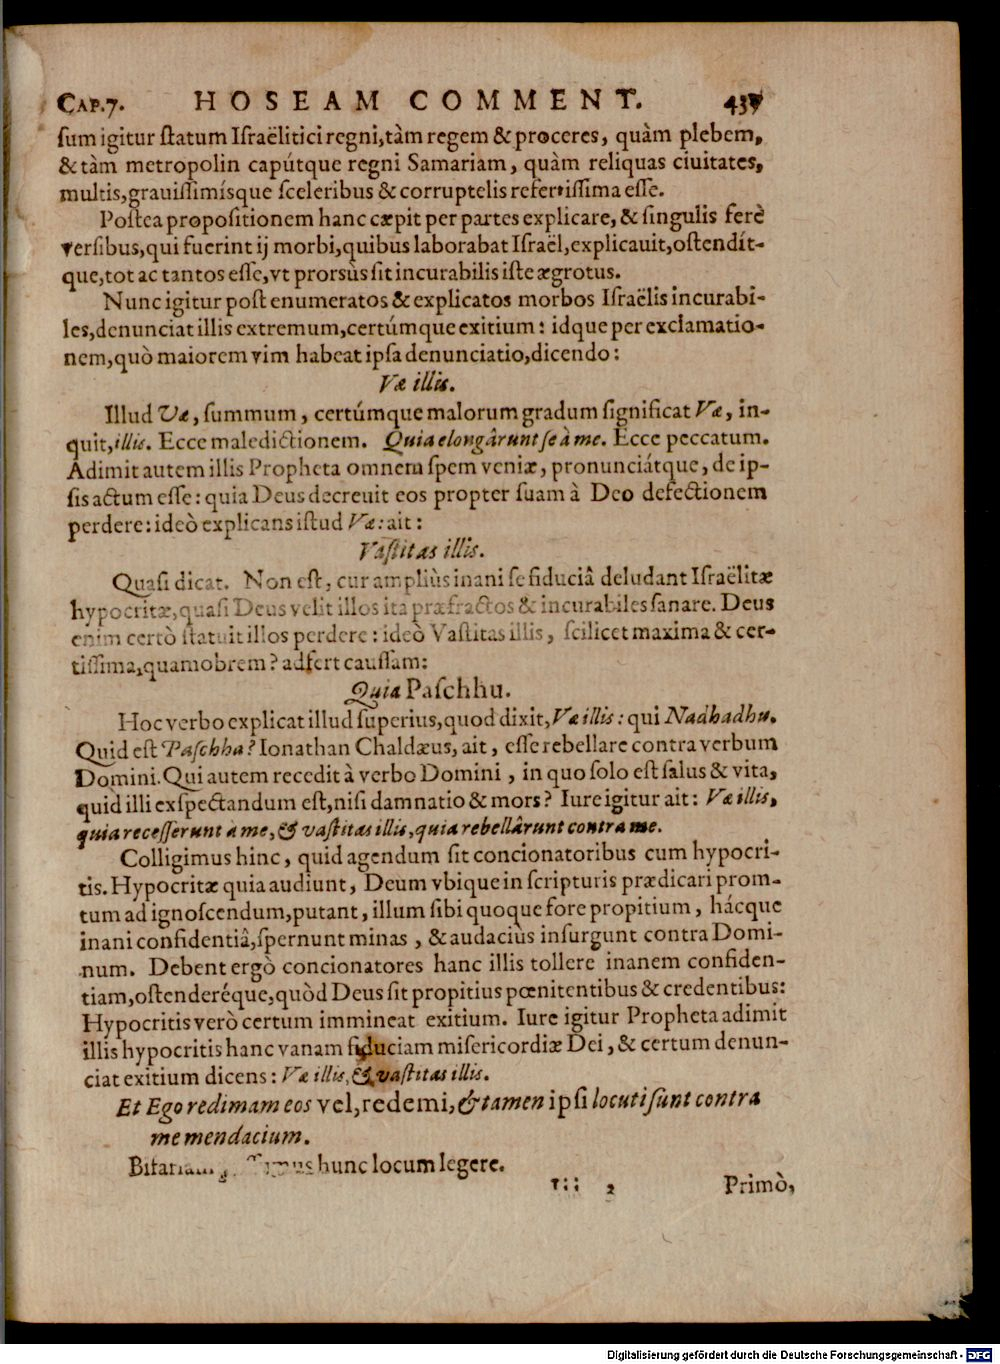 CAP.7. HOSEAM COMMENT. 437
sum igitur statum Israëlitici regni, tàm regem & proceres, quàm plebem,
& tàm metropolin capútque regni Samariam, quàm reliquas ciuitates,
multis, grauissimísque sceleribus & corruptelis refertissima esse.
Postea propositionem hanc cæpit per partes explicare, & singulis ferè
versibus, qui fuerint ij morbi, quibus laborabat Israël, explicauit, ostendít-
que, tot ac tantos esse, vt prorsùs sit incurabilis iste ægrotus.
Nunc igitur post enumeratos & explicatos morbos Israëlis incurabi-
les, denunciat illis extremum, certúmque exitium: idque per exclamatio-
nem, quò maiorem vim habeat ipsa denunciatio, dicendo:
Væ illis.
Illud Væ, summum, certúmque malorum gradum significat Væ, in-
quit, illis. Ecce maledictionem. Quia elongârunt se à me. Ecce peccatum.
Adimit autem illis Propheta omnem spem veniæ, pronunciátque, de ip-
sis actum esse: quia Deus decreuit eos propter suam à Deo defectionem
perdere: ideò explicans istud Væ: ait:
Vastitas illis.
Quasi dicat. Non est, cur ampliùs inani se fiduciâ deludant Israëlitæ
hypocritæ, quasi Deus velit illos ita præfractos & incurabiles sanare. Deus
enim certò statuit illos perdere: ideò Vastitas illis, scilicet maxima & cer-
tissima, quamobrem? adfert caussam:
Quia Paschhu.
Hoc verbo explicat illud superius, quod dixit, Væ illis: qui Nadhadhu.
Quid est Paschha? Ionathan Chaldæus, ait, esse rebellare contra verbum
Domini. Qui autem recedit à verbo Domini, in quo solo est salus & vita,
quid illi exspectandum est, nisi damnatio & mors? Iure igitur ait: Væ illis,
quia recesserunt à me, & vastitas illis, quia rebellârunt contra me.
Colligimus hinc, quid agendum sit concionatoribus cum hypocri-
tis. Hypocritæ quia audiunt, Deum vbique in scripturis prædicari prom-
tum ad ignoscendum, putant, illum sibi quoque fore propitium, hácque
inani confidentiâ, spernunt minas, & audaciùs insurgunt contra Domi-
num. Debent ergò concionatores hanc illis tollere inanem confiden-
tiam, ostenderéque, quòd Deus sit propitius pœnitentibus & credentibus:
Hypocritis verò certum immineat exitium. Iure igitur Propheta adimit
illis hypocritis hanc vanam fiduciam misericordiæ Dei, & certum denun-
ciat exitium dicens: Væ illis, & vastitas illis.
Et Ego redimam eos vel, redemi, & tamen ipsi locuti sunt contra
me mendacium.
hunc locum legere.
2 Primò,
Digitalisierung gefördert durch die Deutsche Forschungsgemeinschaft - DFG